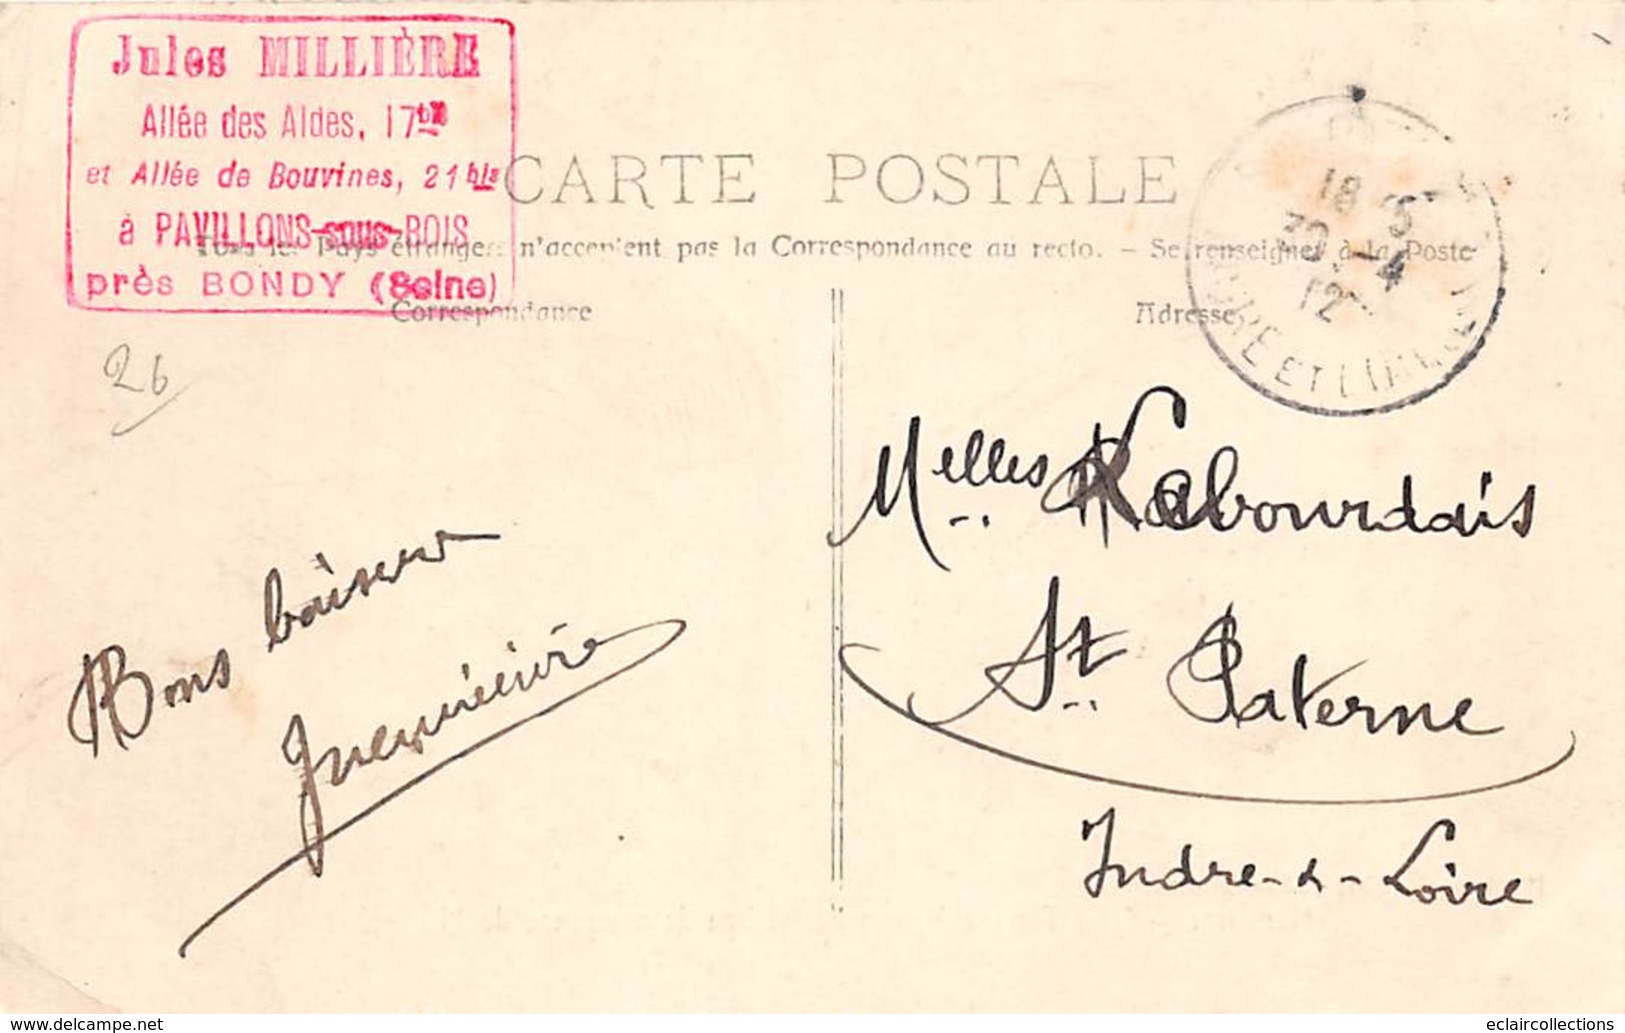 Jules MILLIÈRE
Allée des Aldes, 17 bis
et Allée de Bouvines, 21 bis
à PAVILLONS-sous-BOIS
près BONDY (Seine)
CARTE POSTALE
Tous les Pays étrangers n'acceptent pas la Correspondance au recto. - Se renseigner à la Poste
Correspondance
Adresse
18 3
30 - 4
12
INDRE ET LOIRE
26
Melles Rabourdais
St Paterne
Indre-&-Loire
Bons baisers
eclaircollections